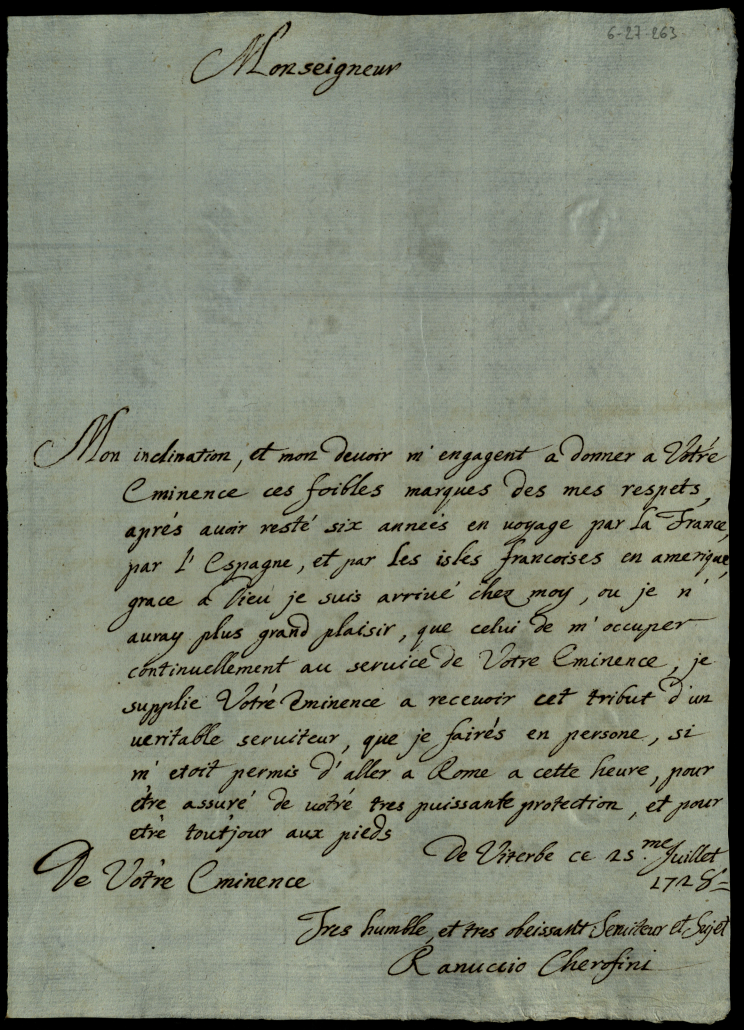 6-27-263
Monseigneur
Mon inclination, et mon devoir m'engagent a donner a Votré
Eminence ces foibles marques des mes respets,
aprés auoir resté six années en uoyage par la France,
par l'Espagne, et par les isles francoises en amerique,
grace a Dieu je suis arriué chez moy, ou je n'
auray plus grand plaisir, que celui de m'occuper
continuellement au seruice de Votre Eminence, je
supplie Votré Eminence a receuoir cet tribut d'un
ueritable seruiteur, que je fairés en persone, si
m'etoit permis d'aller a Rome a cette heure, pour
étre assuré de uotré tres puissante protection, et pour
etré tout'jour aux pieds
De Viterbe ce 25.me Juillet
1728
De Votre Eminence
Tres humble, et tres obeissant Seruiteur et Sujet
Ranuccio Cherofini